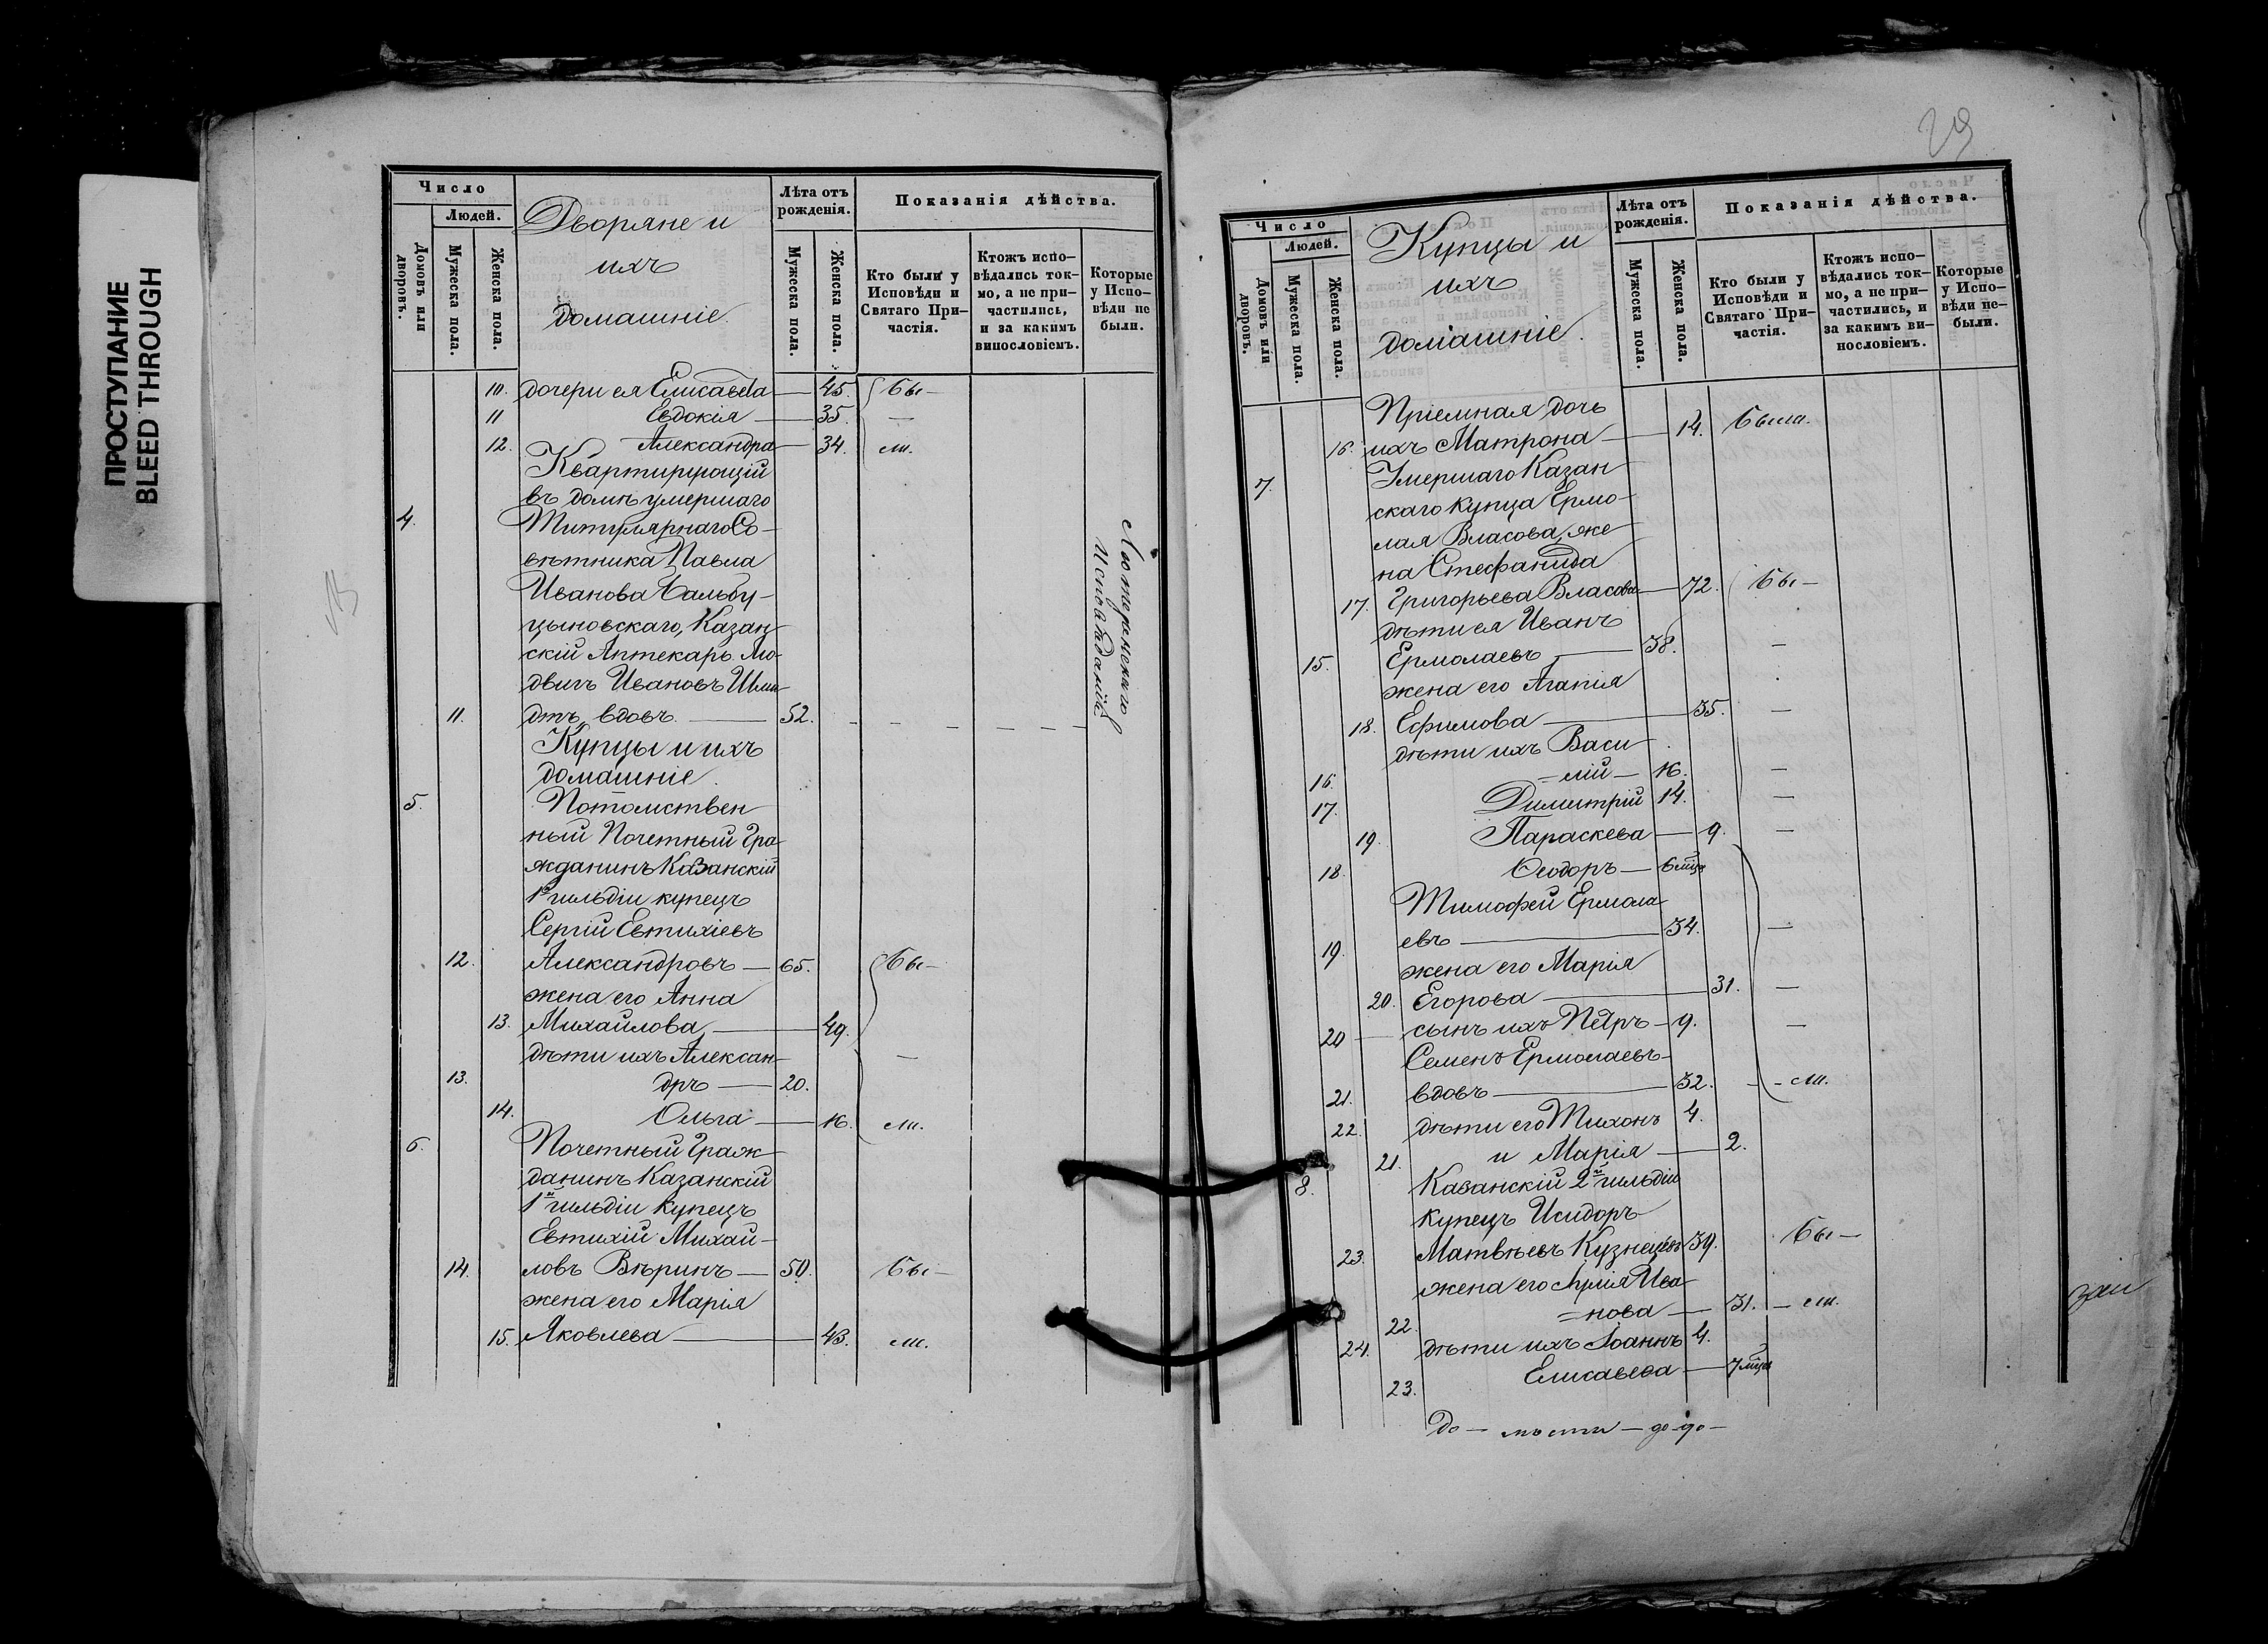 ПРОСТУПАНИЕ
BLEED THROUGH
Число
Людей.
Домовъ или дворовъ.
Мужеска пола.
Женска пола.
Дворяне и
ихъ
домашніе.
Лѣта отъ рожденія.
Мужеска пола.
Женска пола.
Показанія дѣйства.
Кто были у Исповѣди и Святаго При-частія.
Ктожъ испо-вѣдались ток-мо, а не при-частились, и за какимъ винословіемъ.
Которые у Испо-вѣди не были.
10. дочери ея Елисавета — 45. Бы —
11 Евдокія — 35. —
12. Александра — 34. ли.
Квартирующій
въ домѣ умершаго
4. Титулярнаго Со-
вѣтника Павла
Иванова
цыновскаго, Казан-
скій Аптекарь Лю-
двигъ Ивановъ Шми-
11. дтъ, вдовъ. — 52. — — — —
Лютеранскаго
Исповѣданія
Купцы и ихъ
домашніе.
5. Потомствен-
ный Почетный Гра-
жданинъ Казанскій
1й гильдіи купецъ
Сергій Евтихіевъ
12. Александровъ — 65. Бы —
жена его Анна
13. Михайлова — 49.
дѣти ихъ Алексан- —
13. дръ — 20.
14. Ольга — 16. ли.
6. Почетный Граж-
данинъ Казанскій
1й гильдіи купецъ
Евтихій Михай-
14. ловъ Вѣринъ — 50. Бы —
жена его Марія
15. Яковлева — 43. ли.
29
Число
Людей.
Домовъ или дворовъ.
Мужеска пола.
Женска пола.
Купцы и
ихъ
домашніе.
Лѣта отъ рожденія.
Мужеска пола.
Женска пола.
Показанія дѣйства.
Кто были у Исповѣди и Святаго При-частія.
Ктожъ испо-вѣдались ток-мо, а не при-частились, и за какимъ ви-нословіемъ.
Которые у Испо-вѣди не-были.
Пріемная дочь
16. ихъ Матрона — 14. Была.
7. Умершаго Казан-
скаго купца Ермо-
лая Власова, же-
на Стефанида
17. Григорьева Власова — 72. Бы —
дѣти ея Иванъ
15. Ермолаевъ — 38. —
жена его Агапія
18. Ефимова — 35. —
дѣти ихъ Васи-
16. =лій — 16. —
17. Димитрій 14. —
19. Параскева — 9. —
18. Ѳеодоръ — 6 мцъ
Тимофей Ермола-
19. евъ — 34. —
жена его Марія
20. Егорова — 31. —
20 — сынъ ихъ Петръ — 9. —
Семенъ Ермолаевъ
21. вдовъ — 32. — ли.
22. дѣти его Тихонъ 4.
21. и Марія — 2.
8. Казанскій 2й гильдіи
купецъ Исидоръ
23. Матвѣевъ Кузнецовъ 39. Бы —
жена его Ива-
22. =нова — 31. — ли.
24. дѣти ихъ Іоаннъ 4.
23. Елисавета — 7 мцъ